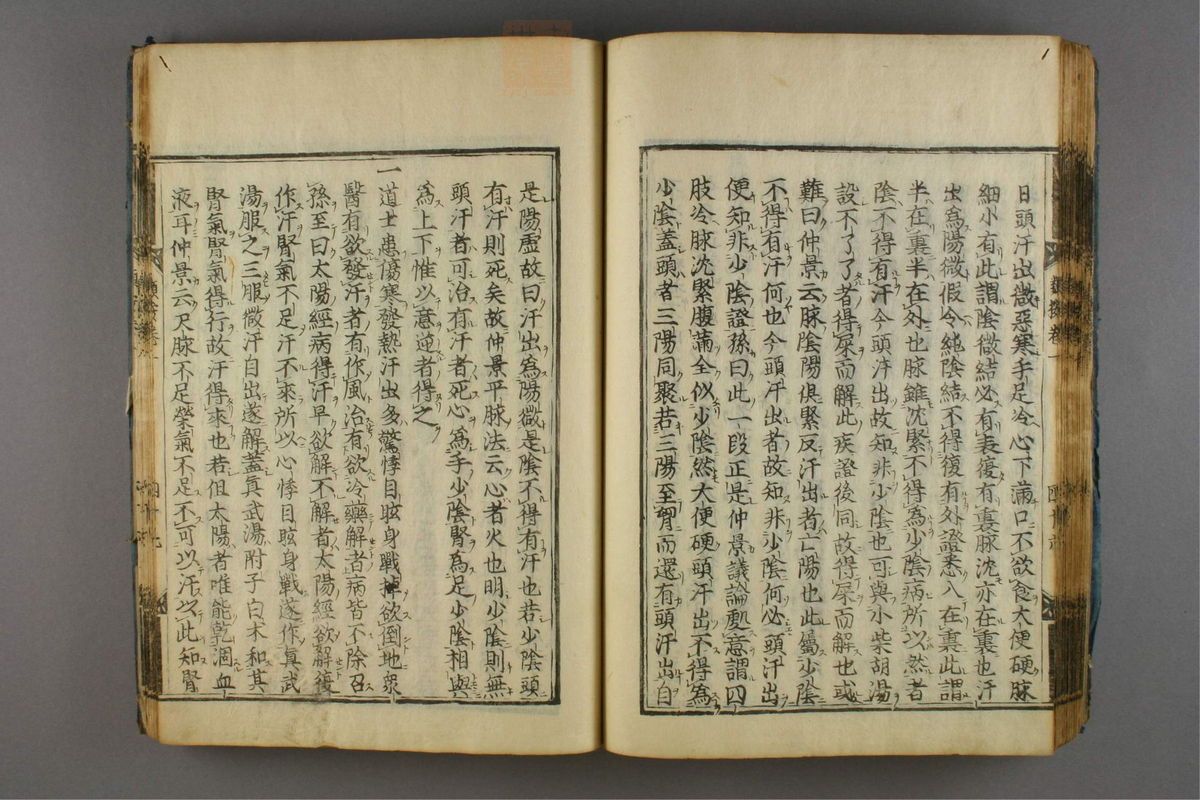 日頭汗出微惡寒手足冷心下滿口不欲食大便硬脉
細小有此謂陰微結必有表復有裏脉沈亦在裏也汗
出爲陽微假令純陰結不得復有外證悉入在裏此謂
半在裏半在外也脉雖沈緊不得爲少陰病所以然者
陰不得有汗今頭汗出故知非少陰也可與小柴胡湯
設不了了者得屎而解此疾證後同故得屎而解也或
難曰仲景云脉陰陽俱緊反汗出者亡陽也此屬少陰
不得有汗何也今頭汗出者故知非少陰何必頭汗出
便知非少陰證孫曰此一段正是仲景議論處意謂四
肢冷脉沈緊腹滿全似少陰然大便硬頭汗出不得爲
少陰蓋頭者三陽同聚若三陽至胷而還有頭汗出自
是陽虛故曰汗出爲陽微是陰不得有汗也若少陰頭
有汗則死矣故仲景平脉法云心者火也明少陰則無
頭汗者可治有汗者死心爲手少陰腎爲足少陰相與
爲上下惟以意逆者得之
一道士患傷寒發熱汗出多驚悸目眩身戰掉欲倒地衆
醫有欲發汗者有作風治有欲冷藥解者病皆不除召
孫至曰太陽經病得汗早欲解不解者太陽經欲解復
作汗腎氣不足汗不來所以心悸目眩身戰遂作眞武
湯服之三服微汗自出遂解蓋眞武湯附子白朮和其
腎氣腎氣得行故汗得來也若但太陽者唯能乾涸血
液耳仲景云尺脉不足榮氣不足不可以汗以此知腎